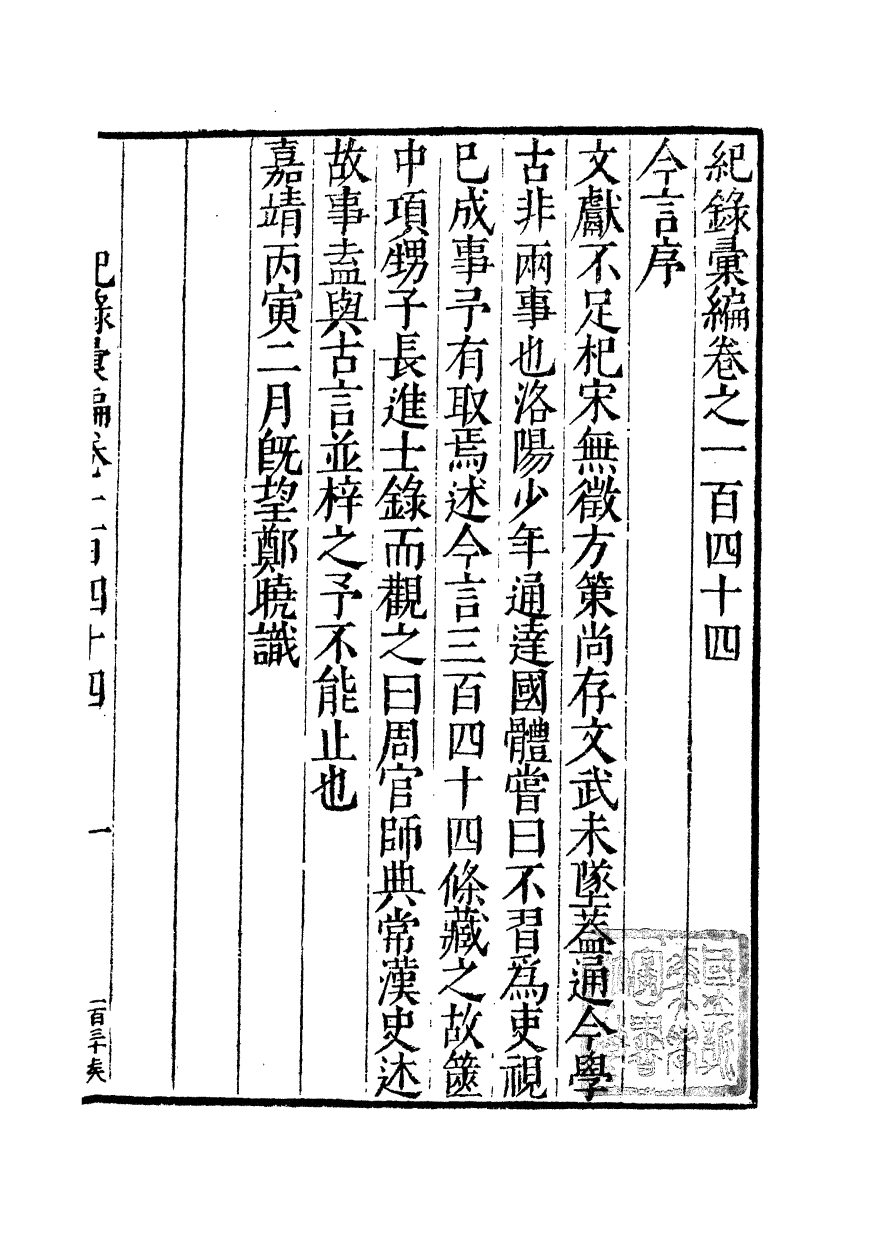 紀錄彙編卷之一百四十四
今言序
文獻不足杞宋無徵方策尚存文武未墜葢通今學
古非兩事也洛陽少年通達國體嘗曰不習爲吏視
已成事予有取焉述今言三百四十四條藏之故篋
中項甥子長進士錄而觀之曰周官師典常漢史述
故事盍與古言並梓之予不能止也
嘉靖丙寅二月旣望鄭曉識
紀錄彙編卷一百四十四
一